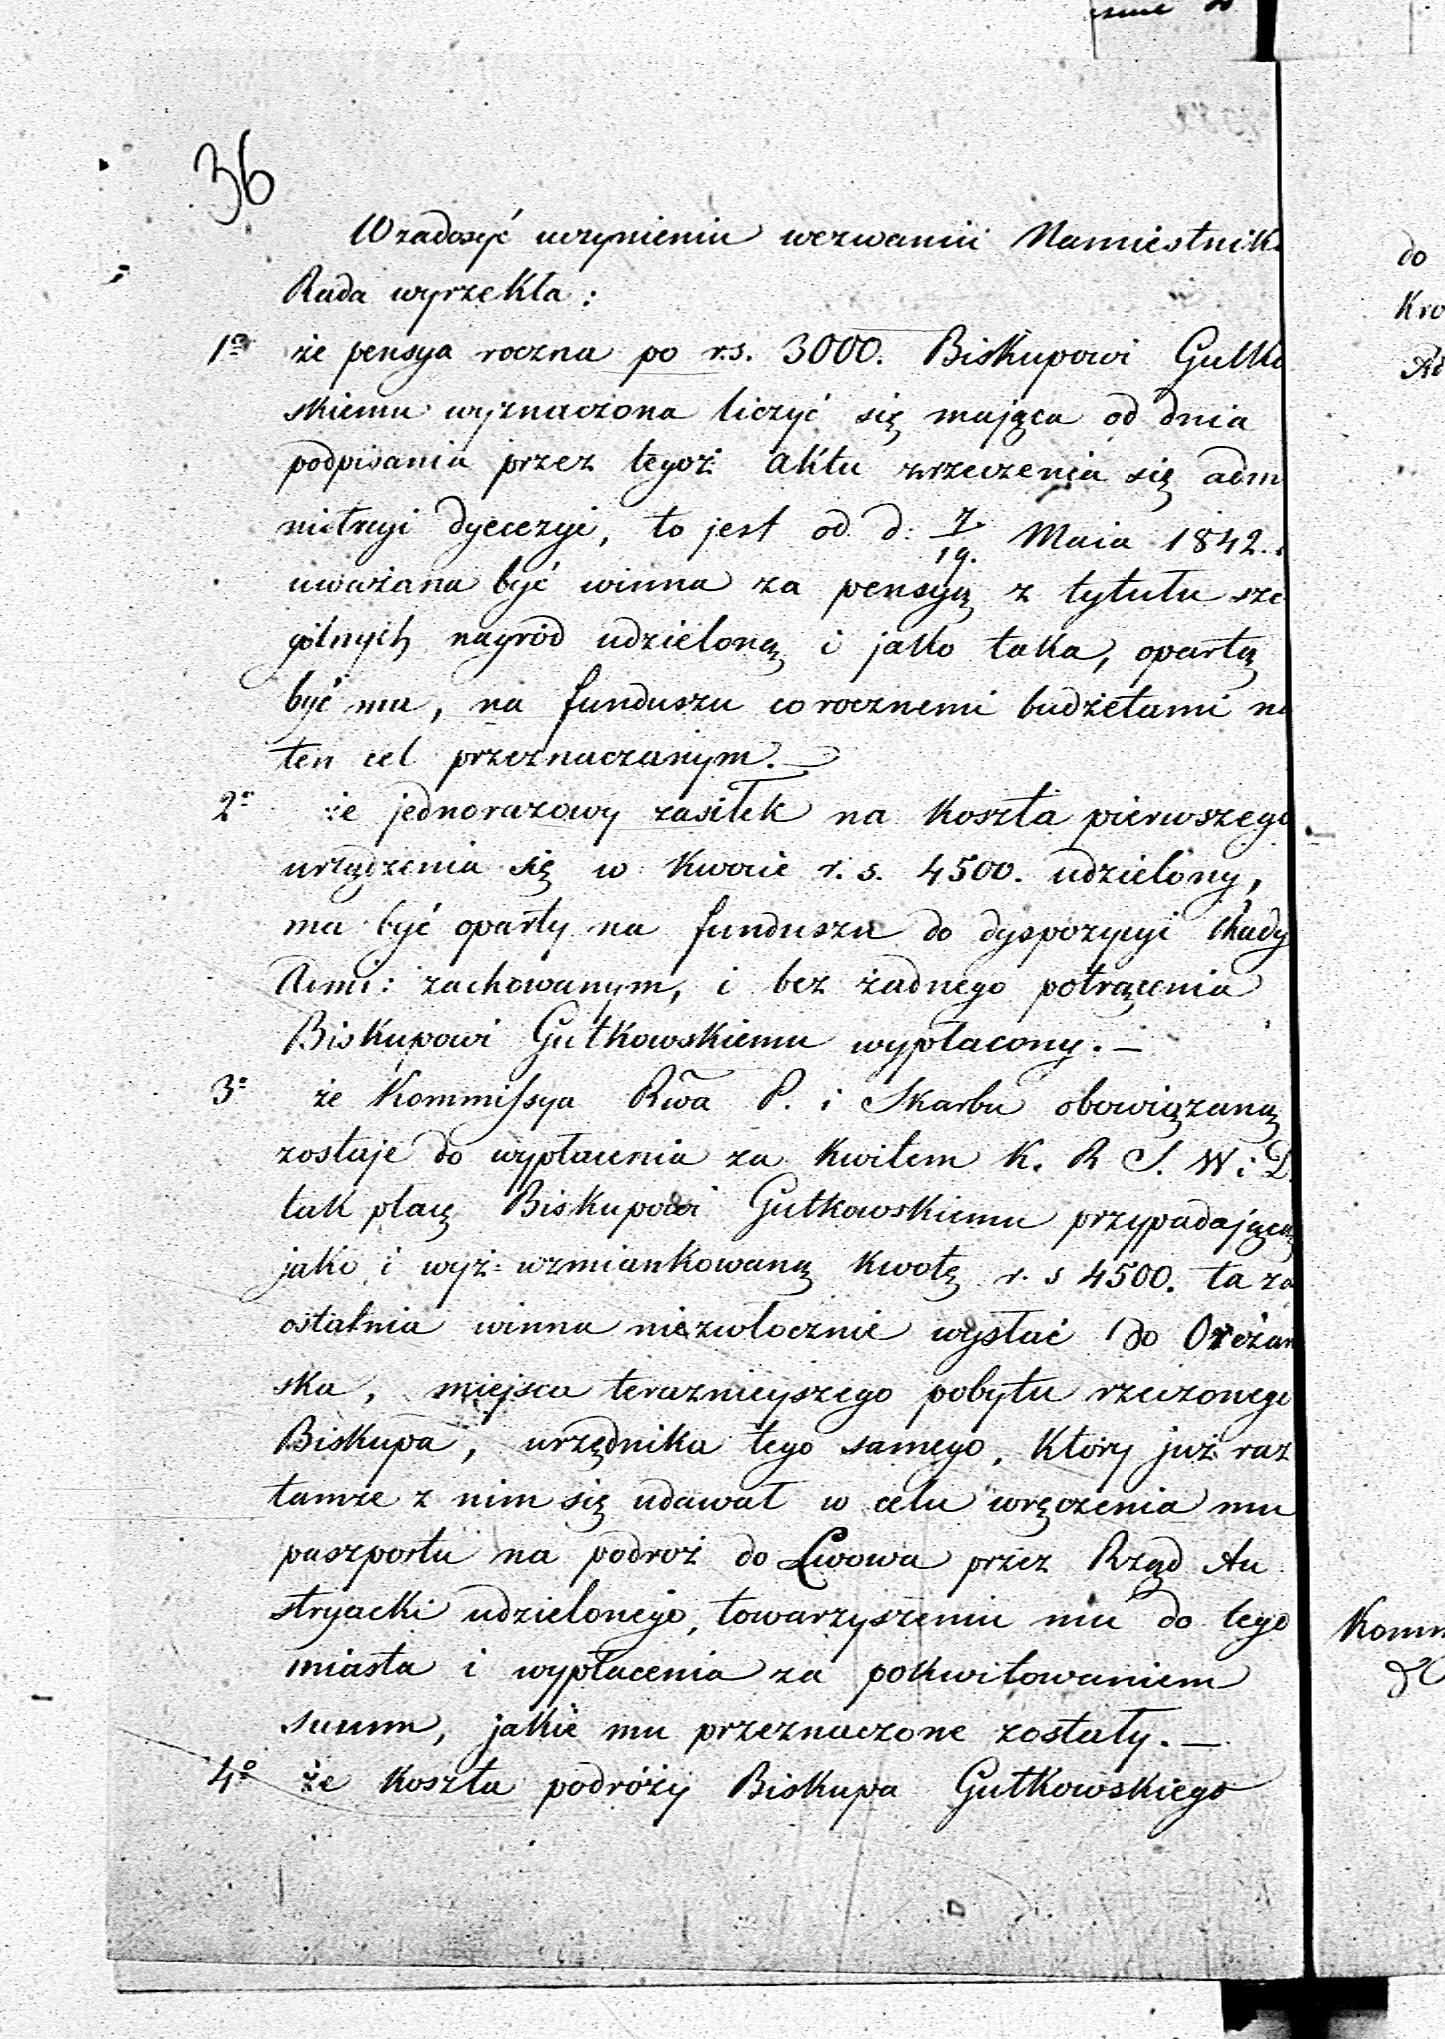 36
W zadosyć uczynieniu wezwaniu Namiestnika
Rada wyrzekła:
1º że pensya roczna po r.s. 3000. Biskupowi Gutko
skiemu wyznaczona liczyć się mająca od dnia
podpisania przez tegoż aktu zrzeczenia się adm
nistracyi dyecezyi, to jest od d: 7/19. Maia 1842.
uważana być winna za pensyą z tytułu szc
gólnych nagród udzieloną i jako taka, opartą
być ma, na funduszu corocznemi budżetami na
ten cel przeznaczanym. —
2º że jednorazowy zasiłek na koszta pierwszego
urządzenia się w kwocie r. s. 4500. udzielony,
ma być oparty na funduszu do dyspozycyi Rady
Admi: zachowanym, i bez żadnego potrącenia
Biskupowi Gutkowskiemu wypłacony. —
3º że Kommissya Rwa P. i Skarbu obowiązaną
zostaje do wypłacenia za kwitem K. R S. W. i D.
tak płacę Biskupowi Gutkowskiemu przypadającą
jako i wyż wzmiankowaną kwotę r. s 4500. ta za
ostatnia winna niezwłocznie wysłać do Oreżan
ska, miejsca teraznieyszego pobytu rzeczonego
Biskupa, urzędnika tego samego, który już raz
tamże z nim się udawał w celu wręczenia mu
paszportu na podroż do Lwowa przez Rząd Au
stryacki udzielonego, towarzyszeniu mu do tego
miasta i wypłacenia za pokwitowaniem
summ, jakie mu przeznaczone zostały. —
4º że koszta podróży Biskupa Gutkowskiego
do
Kro
Ad
Komm